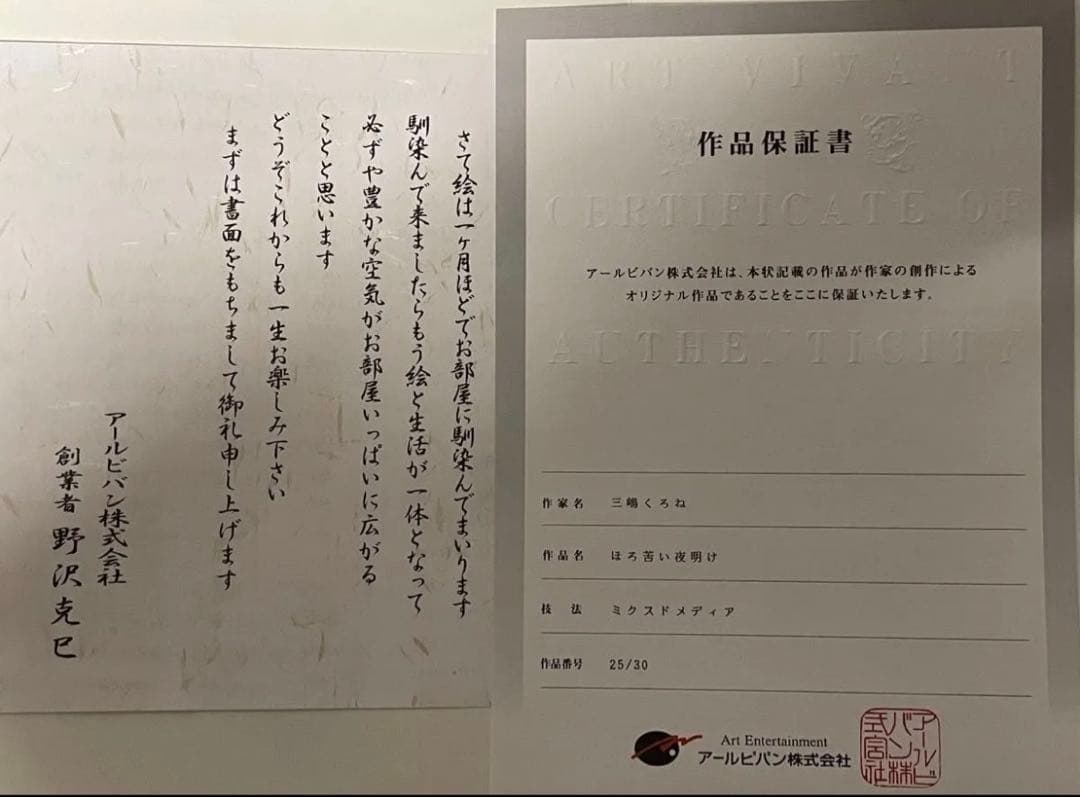 さて絵は一ヶ月ほどでお部屋に馴染んでまいります
馴染んで来ましたらもう絵と生活が一体となって
必ずや豊かな空気がお部屋いっぱいに広がる
ことと思います
どうぞこれからも一生お楽しみ下さい
まずは書面をもちまして御礼申し上げます
アールビバン株式会社
創業者 野沢克巳
ART VIVANT
作品保証書
CERTIFICATE OF
アールビバン株式会社は、本状記載の作品が作家の創作による
オリジナル作品であることをここに保証いたします。
AUTHENTICITY
作家名 三嶋くろね
作品名 ほろ苦い夜明け
技 法 ミクスドメディア
作品番号 25/30
Art Entertainment
アールビバン株式会社
アールビ
バン株
式会社